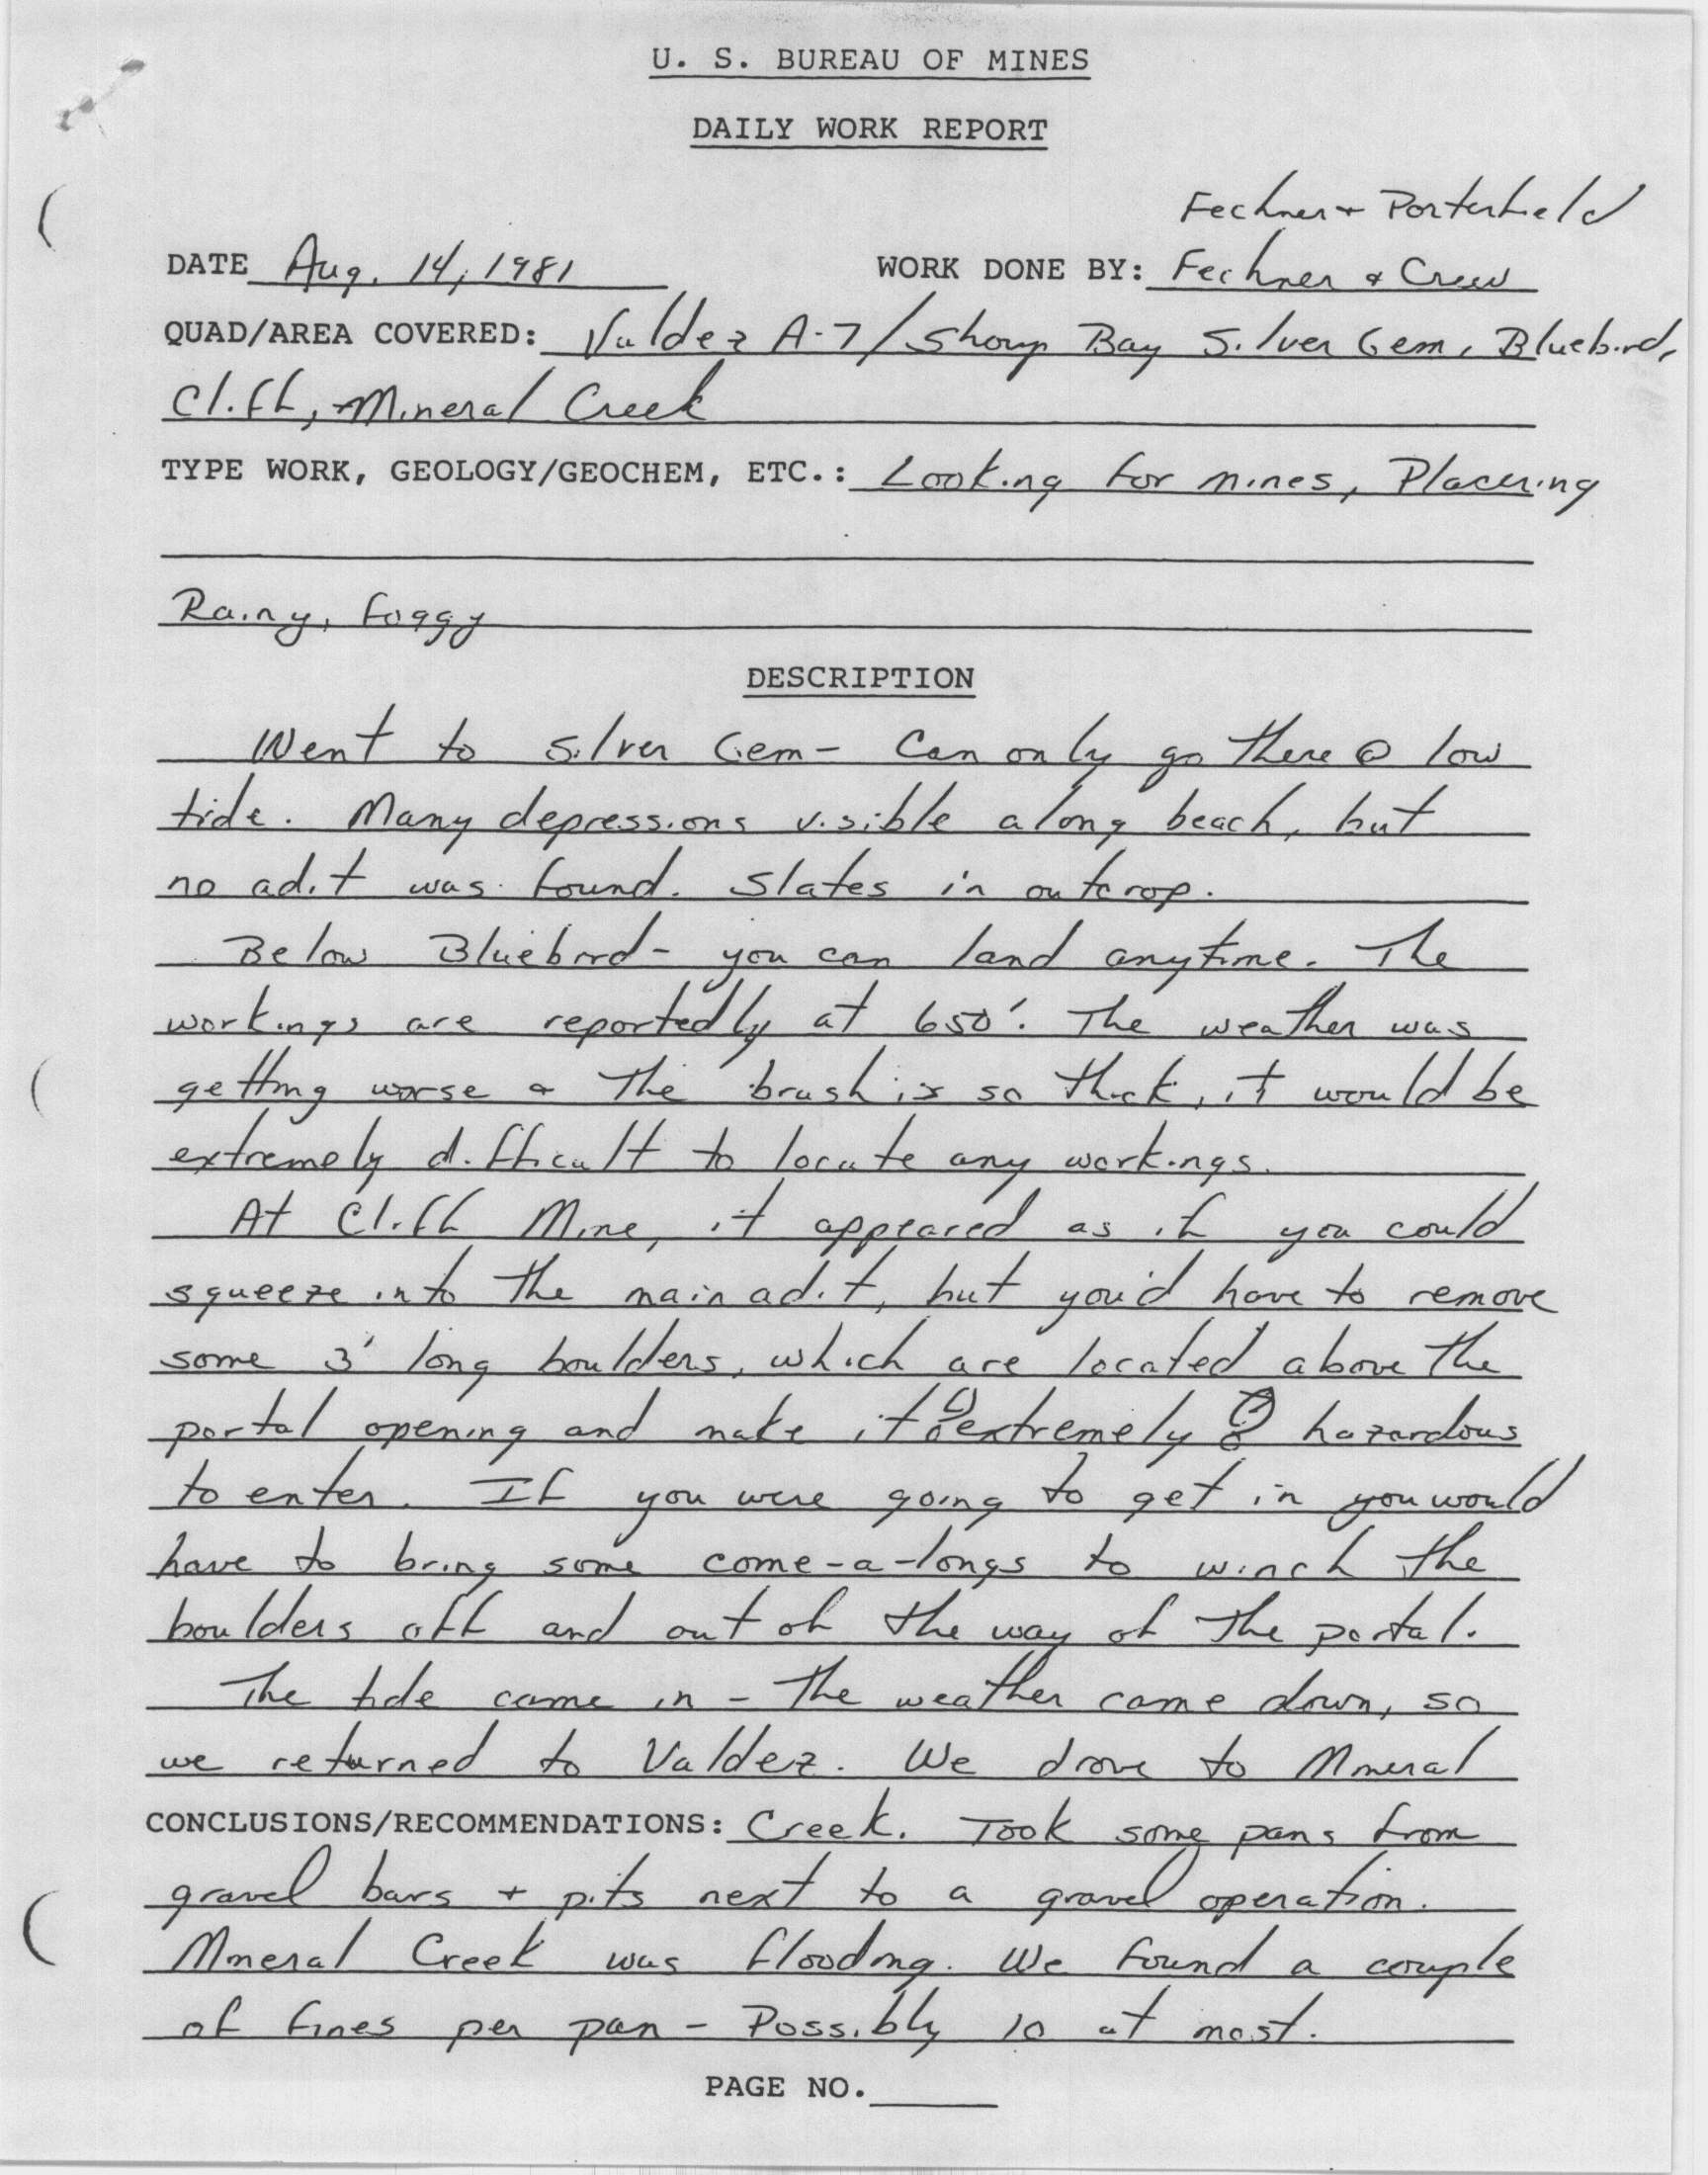 U. S. BUREAU OF MINES
DAILY WORK REPORT
Fechner + Porterfield
DATE Aug. 14, 1981 WORK DONE BY: Fechner & Crew
QUAD/AREA COVERED: Valdez A-7/Shoup Bay Silver Gem, Bluebird,
Cliff, Mineral Creek
TYPE WORK, GEOLOGY/GEOCHEM, ETC.: Looking for mines, Placering
Rainy, foggy
DESCRIPTION
Went to Silver Gem - Can only go there @ low
tide. Many depressions visible along beach, but
no adit was found. Slates in outcrop.
Below Bluebird - you can land anytime. The
workings are reportedly at 650'. The weather was
getting worse & the brush is so thick, it would be
extremely difficult to locate any workings.
At Cliff Mine, it appeared as if you could
squeeze into the main adit, but you'd have to remove
some 3' long boulders, which are located above the
portal opening and make it (!) extremely (!) hazardous
to enter. If you were going to get in you would
have to bring some come-a-longs to winch the
boulders off and out of the way of the portal.
The tide came in - the weather came down, so
we returned to Valdez. We drove to Mineral
CONCLUSIONS/RECOMMENDATIONS: Creek. Took some pans from
gravel bars + pits next to a gravel operation.
Mineral Creek was flooding. We found a couple
of fines per pan - Possibly 10 at most.
PAGE NO.